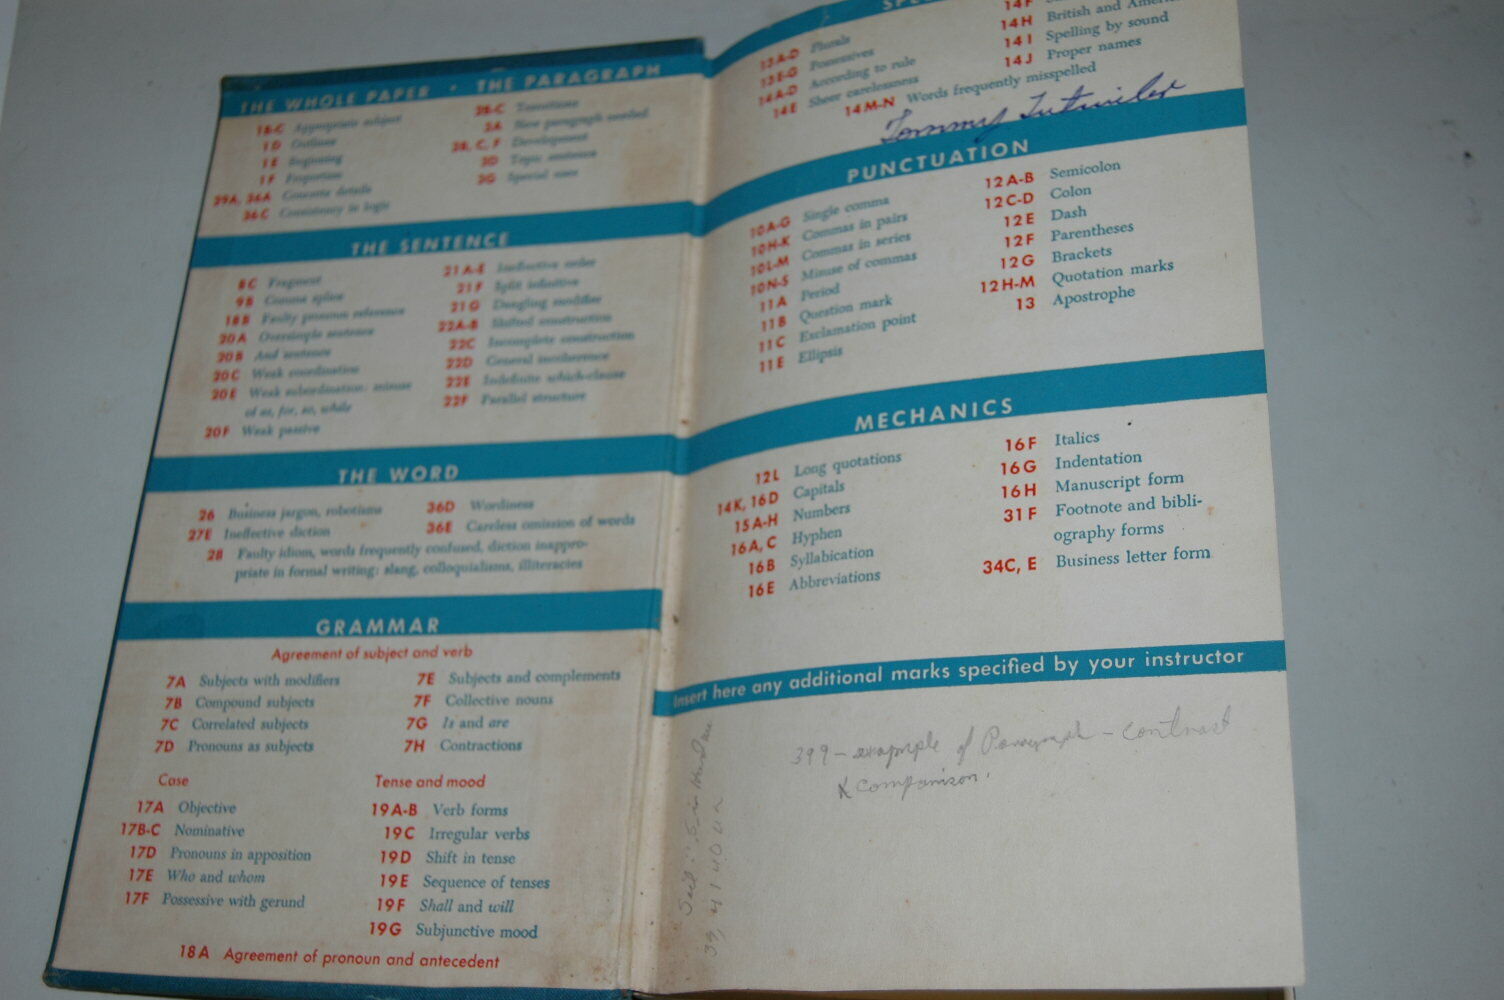 THE WHOLE PAPER · THE PARAGRAPH
1B-C Appropriate subject
1D Outlines
1E Beginning
1F Proportion
29A, 36A Concrete details
36C Consistency in logic
2B-C Transitions
3A New paragraph needed
3B, C, F Development
3D Topic sentence
3G Special uses
THE SENTENCE
8C Fragment
9B Comma splice
18B Faulty pronoun reference
20A Oversimple sentence
20B And sentence
20C Weak coordination
20E Weak subordination: misuse
of as, for, so, while
20F Weak passive
21A-E Ineffective order
21F Split infinitive
21G Dangling modifier
22A-B Shifted construction
22C Incomplete construction
22D General incoherence
22E Indefinite which-clause
22F Parallel structure
THE WORD
26 Business jargon, robotisms
27E Ineffective diction
36D Wordiness
36E Careless omission of words
28 Faulty idiom, words frequently confused, diction inappro-
priate in formal writing: slang, colloquialisms, illiteracies
GRAMMAR
Agreement of subject and verb
7A Subjects with modifiers
7B Compound subjects
7C Correlated subjects
7D Pronouns as subjects
7E Subjects and complements
7F Collective nouns
7G Is and are
7H Contractions
Case
17A Objective
17B-C Nominative
17D Pronouns in apposition
17E Who and whom
17F Possessive with gerund
Tense and mood
19A-B Verb forms
19C Irregular verbs
19D Shift in tense
19E Sequence of tenses
19F Shall and will
19G Subjunctive mood
18A Agreement of pronoun and antecedent
13A-D Plurals
13E-G Possessives
14A-D According to rule
14E Sheer carelessness
14F
14H British and
14I Spelling by sound
14J Proper names
14M-N Words frequently misspelled
Tommy Tutwiler
PUNCTUATION
10A-G Single comma
10H-K Commas in pairs
10L-M Commas in series
10N-S Misuse of commas
11A Period
11B Question mark
11C Exclamation point
11E Ellipsis
12A-B Semicolon
12C-D Colon
12E Dash
12F Parentheses
12G Brackets
12H-M Quotation marks
13 Apostrophe
MECHANICS
12L Long quotations
14K, 16D Capitals
15A-H Numbers
16A, C Hyphen
16B Syllabication
16E Abbreviations
16F Italics
16G Indentation
16H Manuscript form
31F Footnote and bibli-
ography forms
34C, E Business letter form
Insert here any additional marks specified by your instructor
399 - example of Paragraph - contrast
& comparison.